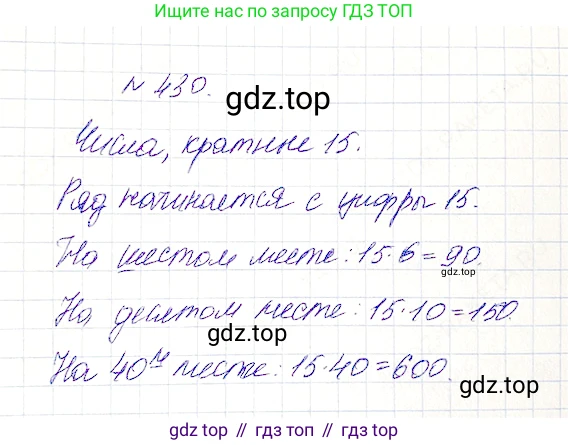 Ищите нас по запросу ГДЗ ТОП
№ 430.
gdz.top
Числа, кратные 15.
Ряд начинается с цифры 15.
На шестом месте: 15·6=90.
gdz.top
На десятом месте: 15·10=150.
gdz.top
На 40м месте: 15·40=600.
gdz.top
gdz top // гдз топ // gdz.top